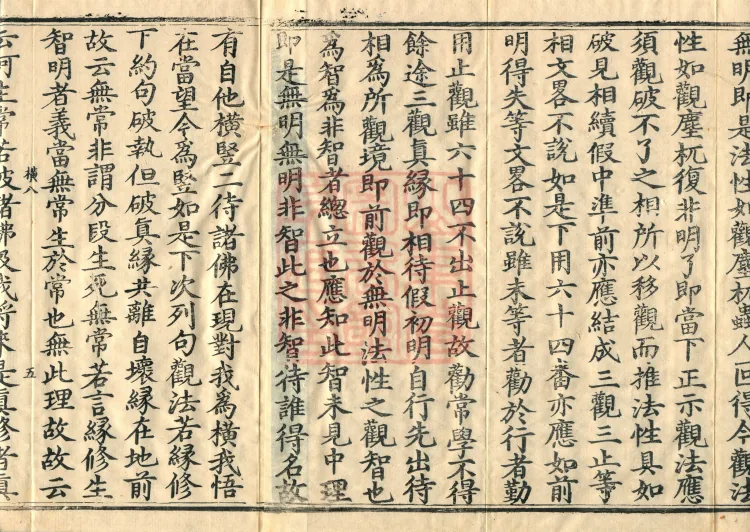 無明即是法性如觀塵杌蟲人回得今觀法
性如觀塵杌復非明了即當下正示觀法應
須觀破不了之相所以移觀而推法性具如
破見相續假中準前亦應結成三觀三止等
相文畧不說如是下用六十四番亦應如前
明得失等文畧不說雖未等者勸於行者勤
用止觀雖六十四不出止觀故勸常學不得
餘途三觀真緣即相待假初明自行先出待
相為所觀境即前觀於無明法性之觀智也
為智為非智者總立也應知此智未見中理
即是無明無明非智此之非智待誰得名故
有自他橫豎二待諸佛在現對我為橫我悟
在當望今為豎如是下次列句觀法若緣修
下約句破執但破真緣共離自壞緣在地前
故云無常非謂分段生死無常若言緣修生
智明者義當無常生於常也無此理故故云
橫八 五
云何生常若破者佛及我將來是真修者真